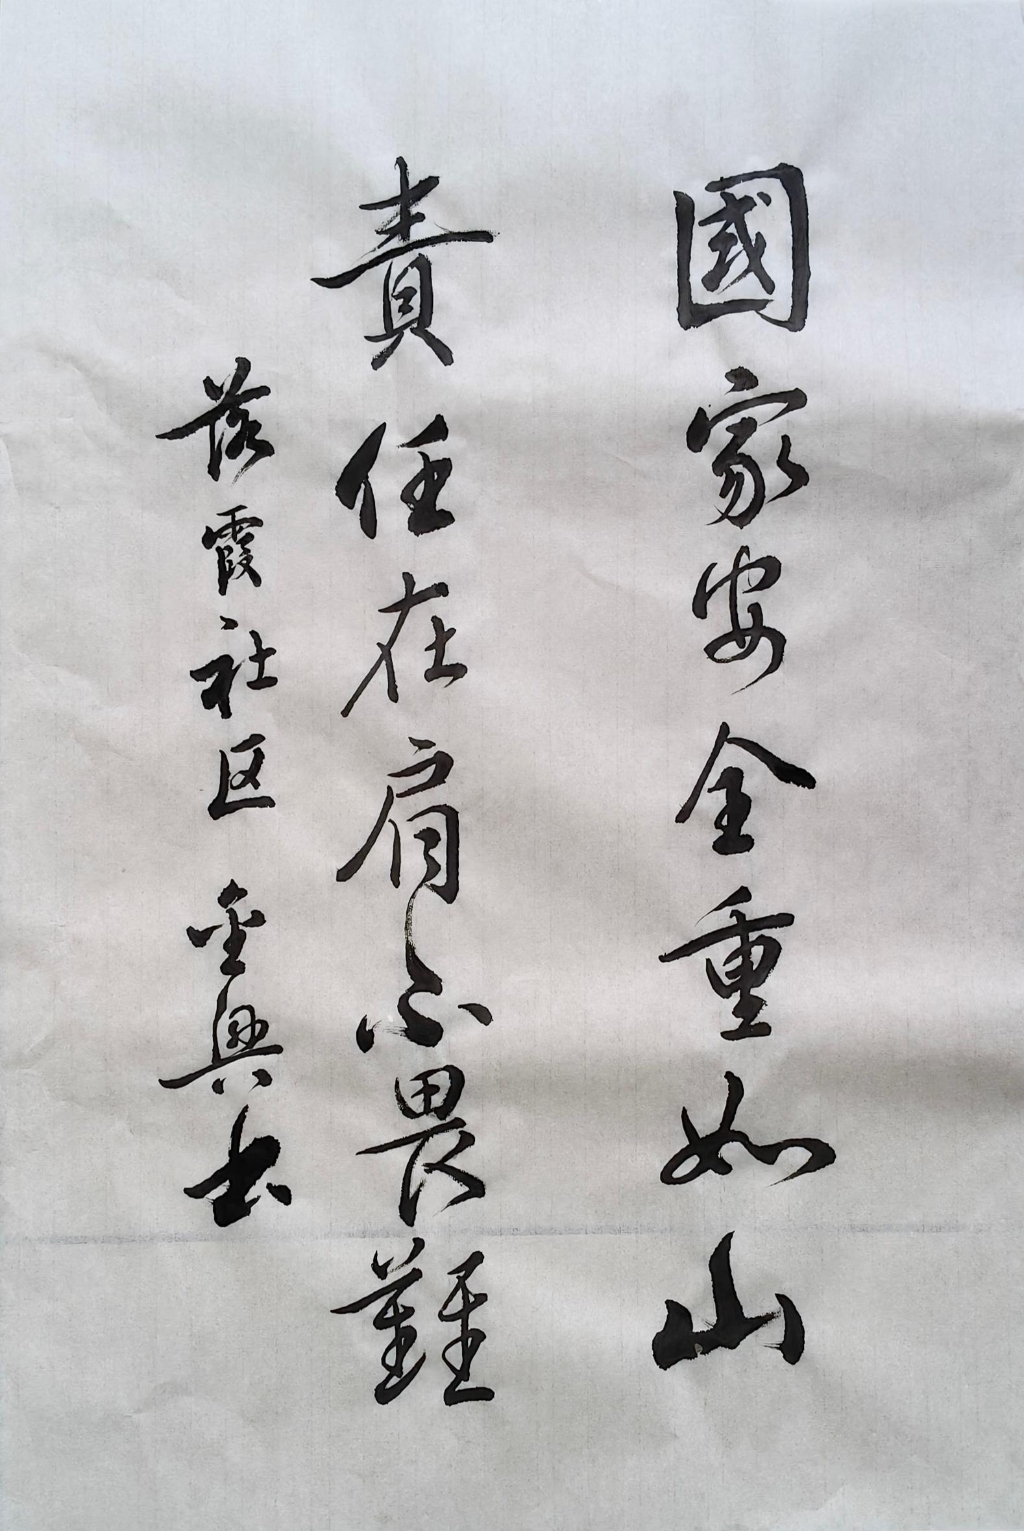 國家安全重如山
責任在肩不畏難
落霞社区 金興书